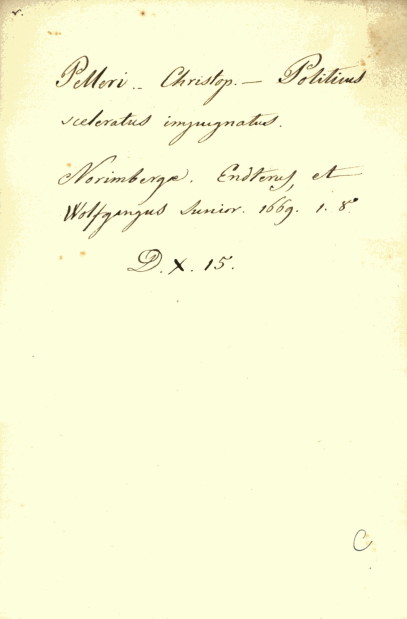 r.
Pelleri.. Christop. — Politicus
sceleratus impugnatus.
Norimbergæ. Endterus, et
Wolfgangus Junior. 1669. 1. 8°
D. X. 15.
C